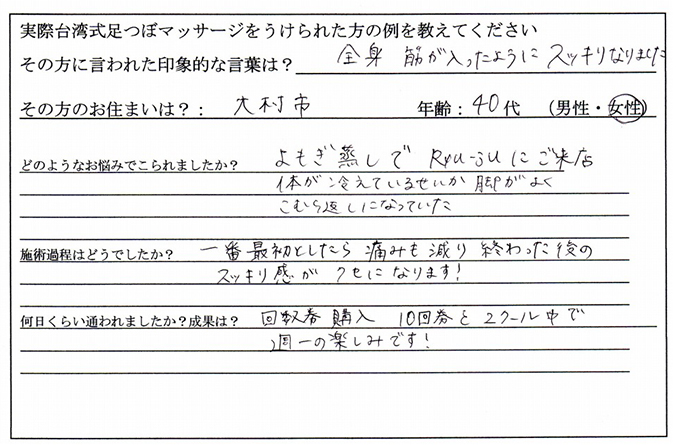 実際台湾式足つぼマッサージをうけられた方の例を教えてください
その方に言われた印象的な言葉は? 全身 筋が入ったように スッキリなりました
その方のお住まいは?: 大村市 年齢:40代 (男性・女性)
どのようなお悩みでこられましたか? よもぎ蒸しで Ryu-Juにご来店
体が冷えているせいか 脚がよく
こむら返しになっていた
施術過程はどうでしたか? 一番最初としたら 痛みも減り 終わった後の
スッキリ感が クセになります!
何日くらい通われましたか?成果は? 回数券購入 10回券を2クール中で
週一の楽しみです!